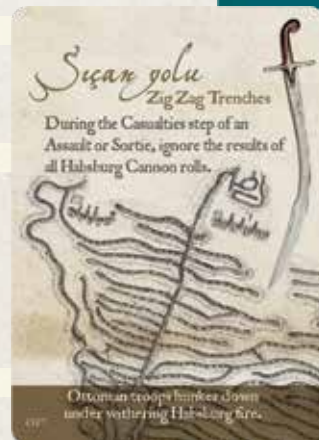 Sıçan yolu
Zig Zag Trenches
During the Casualties step of an
Assault or Sortie, ignore the results of
all Habsburg Cannon rolls.
Ottoman troops hunker down
under withering Habsburg fire.